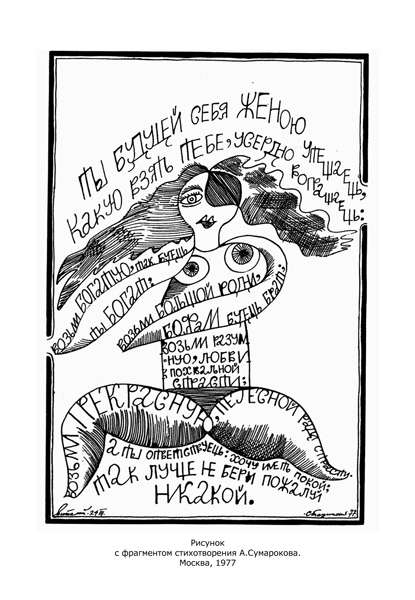 ТЫ БУДУЩЕЙ СЕБЯ ЖЕНОЮ УТЕШАЕШЬ,
КАКУЮ ВЗЯТЬ ТЕБЕ, УСЕРДНО ВОПРАШАЕШЬ:
ВОЗЬМИ БОГАТУЮ, ТАК БУДЕШЬ
ТЫ БОГАТ;
ВОЗЬМИ БОЛЬШОЙ РОДНИ,
БУДЕШЬ БРАТ;
ВОЗЬМИ РАЗУМ
НУЮ, ЛЮБВИ
В ПОХВАЛЬНОЙ
СТРАСТИ;
ВОЗЬМИ ПРЕКРАСНУЮ, ТЕЛЕСНОЙ РАДИ
А ТЫ ОТВЕТСТВУЕШЬ: ХОЧУ ИМЕТЬ ПОКОЙ;
ТАК ЛУЧЕ НЕ БЕРИ ПОЖАЛУЙ
НИКАКОЙ.
Рисунок
с фрагментом стихотворения А.Сумарокова.
Москва, 1977